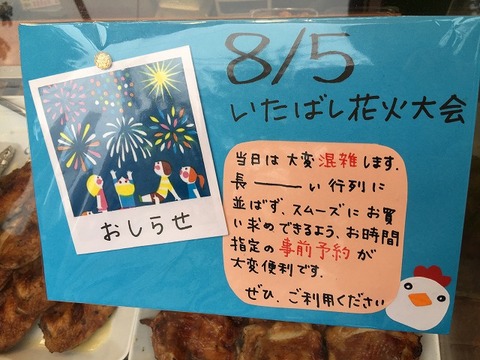 8/5
いたばし花火大会
おしらせ
当日は大変混雑します.
長――い行列に
並ばず、スムーズにお買
い求めできるよう、お時間
指定の事前予約が
大変便利です.
ぜひ、ご利用ください